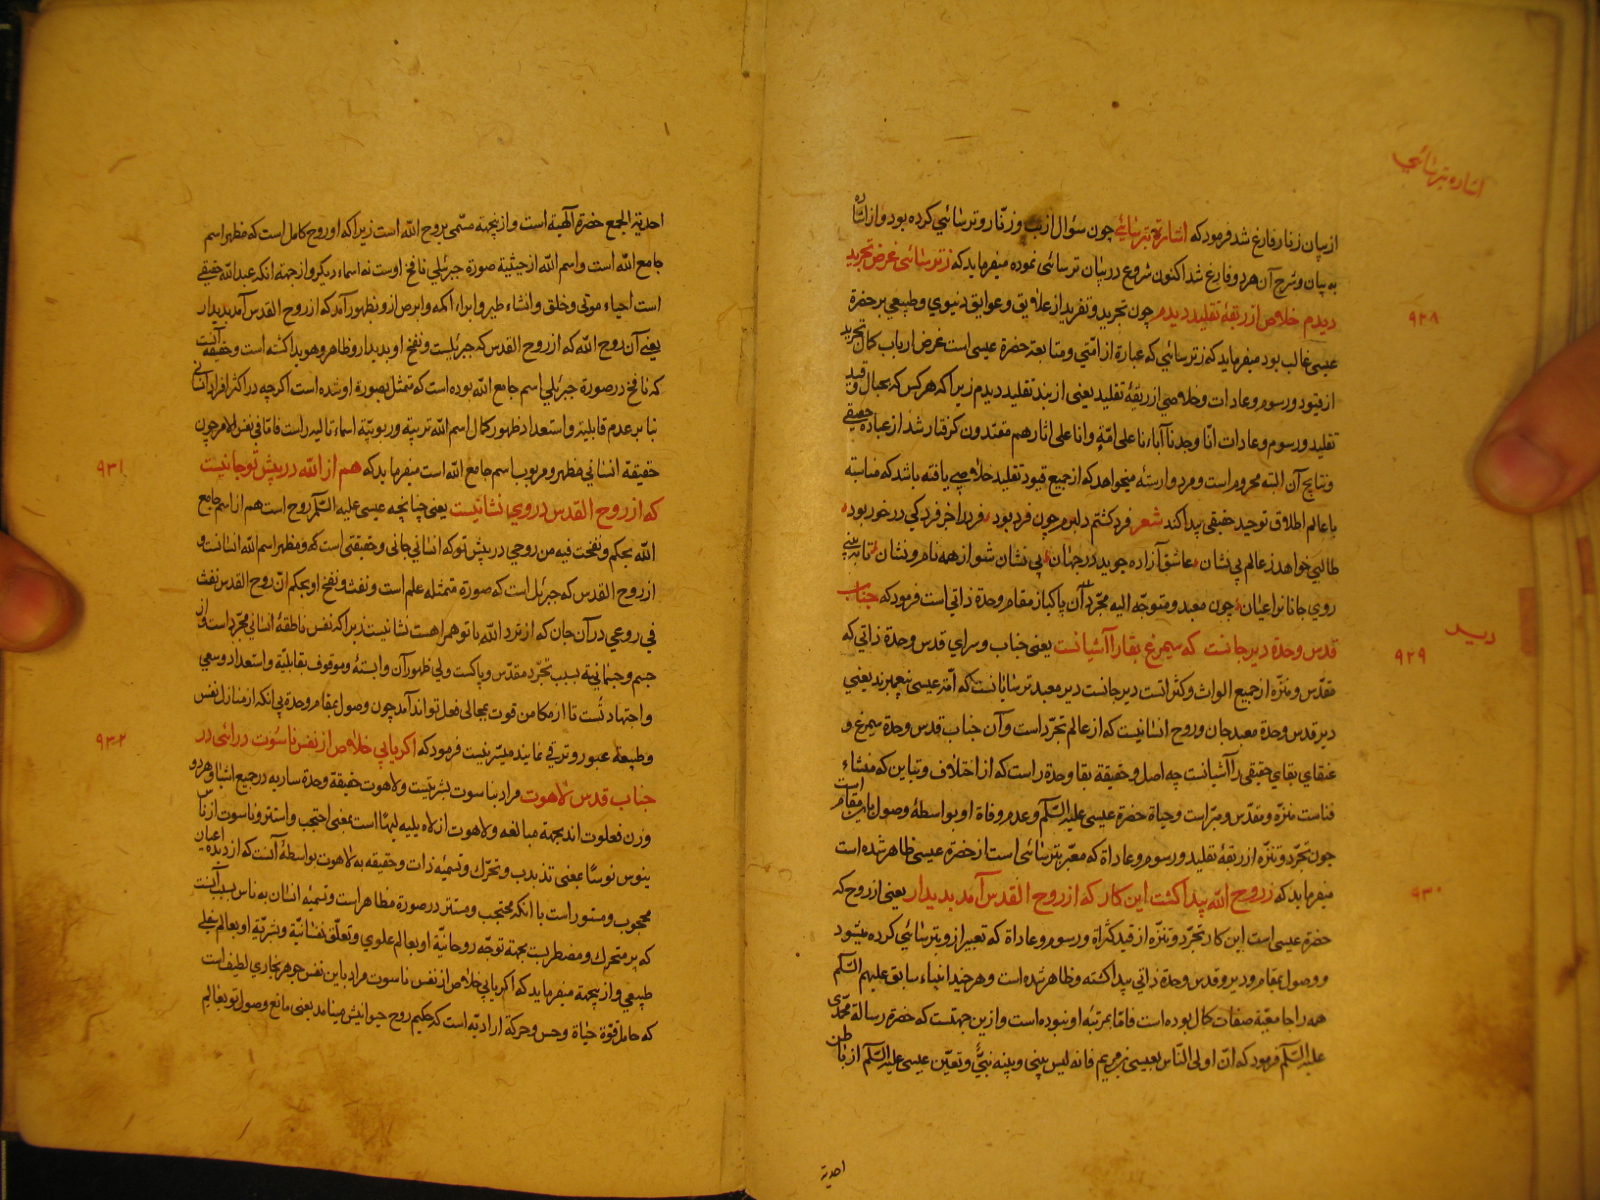 اشاره بترسائی
از بیان زنار فارغ شد فرمود که اشارة بترسائی چون سؤال از بت و زنّار و ترسائی کرده بود و از اشاره
به بیان و شرح آن هر دو فارغ شد اکنون شروع در بیان ترسائی نموده میفرماید که ز ترسائی غرض تجرید
دیدم خلاص از ربقهٔ تقلید دیدم چون تجرید و تفرید از علایق و عوایق دنیوی و طبیعی بر حضرة
۹۲۸
عیسی غالب بود میفرماید که از ترسائی که عبارة از امّتی و متابعة حضرة عیسی است غرض ارباب کمال تجرید
از قیود و رسوم و عادات و خلاصی از ربقهٔ تقلید یعنی از بند تقلید دیدم زیرا که هر کس که بحبال و قید
تقلید و رسوم و عادات انّا وجدنا آباءنا علی امّة و انا علی اثارهم مقتدون گرفتار شد از عبادة حقیقی
و نتایج آن البته محروم است و مرد وارسته میخواهد که از جمیع قیود تقلید خلاصی یافته باشد که مناسبة
با عالم اطلاق توحید حقیقی پیدا کند شعر فرد گشتم دلبرم چون فرد بود فرد را خر فردکی در خور بود
طالبی خواهد ز عالم بی نشان عاشق آزاده جوید در جهان بی نشان شو از همه نام و نشان تا ببینی
روی جانان را عیان چون معبد و متوجّه الیه مجرّد آن پاکباز مقام وحدة ذاتی است فرمود که جناب
قدس وحدة دیر جانست که سیمرغ بقا را آشیانست یعنی جناب و سرای قدس وحدة ذاتی که
دیر
۹۲۹
مقدّس و منزّه از جمیع الواث و کثراتست دیر جانست دیر معبد ترسایانست که امّة عیسی پیغمبرند یعنی
دیر قدس وحدة معبد جان و روح انسانیست که از عالم تجرّد است و آن جناب قدس وحدة سیمرغ و
عنقای بقای حقیقی را آشیانست چه اصل و حقیقة بقا وحدة راست که از اختلاف و تباین که منشاء
فناست منزّه و مقدّس و مبرّاست و حیاة حضرة عیسی علیه السّلام و عدم وفاة او بواسطهٔ وصول باین مقام است
چون تجرّد و تنزّه از ربقهٔ تقلید و رسوم و عاداة که معبّر بترسائی است از حضرة عیسی ظاهر شده است
میفرماید که ز روح الله پیدا گشت این کار که از روح القدس آمد پدیدار یعنی از روح که
۹۳۰
حضرة عیسی است این کار تجرّد و تنزّه از قید کثراة و رسوم و عاداة که تعبیر از و بترسائی کرده میشود
و وصول بمقام و دیر و قدس وحدة ذاتی پیدا گشته و ظاهر شده است و هر چند انبیاء سابق علیهم السّلام
همه را جامعیّة صفات کمال بوده است فامّا بمرتبهٔ او نبوده است و ازین جهتست که حضرة رسالة محمّدی
علیه السّلام فرمود که انّ اولی النّاس بعیسی بن مریم فانه لیس بینی و بینه نبیّ و تعیّن عیسی علیه السّلام از باطن
احدیة
احدیة الجمع حضرة الهیّة است و ازینجهة مسمّی بروح الله است زیرا که او روح کامل است که مظهر اسم
جامع الله است و اسم الله از حیثیة صورة جبرئیلی نافخ اوست نه اسماء دیگر و از جهة انکه عبد الله حقیقی
است احیاء موتی و خلق و انشاء طیر و ابراء اکمه و ابرص ازو بظهور آمد که از روح القدس آمد پدیدار
یعنی آن روح الله که از روح القدس که جبرئیلست و نفخ او پدیدار و ظاهر و هویدا گشته است و حقیقة آنست
که نافخ در صورة جبرئیلی اسم جامع الله بوده است که متمثل بصورة او شده است اگرچه در اکثر افراد انسانی
بنا بر عدم قابلیّة و استعداد ظهور کمال اسم الله تربیة و ربوبیّة اسماء تالیه راست فامّا فی نفس الامر چون
حقیقة انسانی مظهر و مربوب اسم جامع الله است میفرماید که هم از الله در پیش تو جانیست
۹۳۱
که از روح القدس در وی نشانیست یعنی چنانچه عیسی علیه السّلام روح است هم از اسم جامع
الله بحکم و نفخت فیه من روحی در پیش تو که انسانی جانی و حقیقتی است که و مظهر اسم الله انسانست و
از روح القدس که جبرئیل است که صورة متمثله علم است و نفث و نفخ او بحکم انّ روح القدس نفث
فی روعی در آن جان که از نزد الله با تو همراهست نشانیست زیرا که نفس ناطقهٔ انسانی مجرّد است و از
جسم و جسمانیة بسبب تجرّد مقدّس و پاکست ولی ظهور آن وابسته و موقوف بقابلیّة و استعداد و سعی
و اجتهاد تست تا از مکامن قوت بمجالی فعل تواند آمد چون وصول بمقام وحدة بی انکه از منازل نفس
و طبیعة عبور و ترقی نمایند میسّر نیست فرمود که اگر یابی خلاص از نفس ناسوت درائی در
۹۳۲
جناب قدس لاهوت مراد بناسوت بشریّتست و لاهوت حقیقة وحدة ساریه در جمیع اشیا و هر دو
وزن فعلوت اند بجهة مبالغه و لاهوت از لاه یلیه لیهًا است بمعنی احتجب و استتر و ناسوت از ناس
ینوس نوسًا بمعنی تذبذب و تحرّک و تسمیهٔ ذات و حقیقه به لاهوت بواسطهٔ آنست که از دیدهٔ اعیان
محجوب و مستور است با انکه محتجب و مستتر در صورة مظاهر است و تسمیهٔ انسان به ناس بسبب آنست
که پر متحرک و مضطربست بجهة توجّه روحانیّة او بعالم علوی و تعلّق نفسانیّة و بشریّة او بعالم سفلی
طبیعی و ازینجهة میفرماید که اگر یابی خلاص از نفس ناسوت مراد باین نفس جوهر بخاری لطیف است
که حامل قوّة حیاة و حس و حرکة ارادیّه است که حکیم روح حیوانیش مینامد یعنی مانع وصول تو بعالم